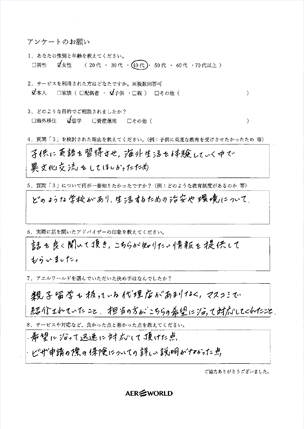 アンケートのお願い
1．あなたの性別と年齢を教えてください。
□男性 ☑女性 （20代・30代・40代・50代・60代・70代以上）
2．サービスを利用された方はどなたですか。※複数回答可
☑本人 □家族（□配偶者・☑子供・□親） □その他（ ）
3．どのような目的でご相談されましたか？
□海外移住 ☑留学 □資産運用 □その他（ ）
4．質問「3」を検討された理由を教えてください。（例：子供に高度な教育を受けさせたかったため 等）
子供に英語を習得させ、海外生活を体験していく中で
異文化交流をしてほしかったため
5．質問「3」について何が一番知りたかったですか？（例：どのような教育制度があるのか 等）
どのような学校があり、生活するための治安や環境について
6．実際に話を聞いたアドバイザーの印象を教えてください。
話を良く聞いて頂き、こちらが知りたい情報を提供して
もらいました。
7．アエルワールドを選んでいただいた決め手はなんでしたか？
親子留学を扱っている代理店があまりなく、マスコミで
紹介されていたこと、担当の方がこちらの希望に沿って対応してくれたこと
8．サービスや対応など、良かった点と悪かった点を教えてください。
・希望に沿って迅速に対応して頂けた点
・ビザ申請の際の保険についての詳しい説明がなかった点
ご協力ありがとうございました。
AER WORLD